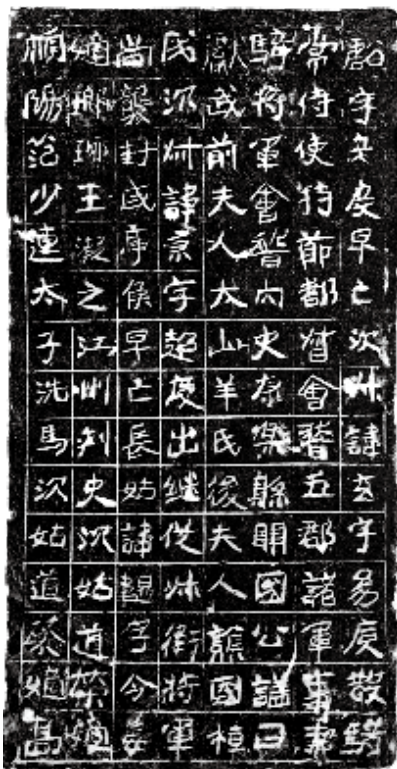 豁字安度早亡次叔諱玄字易度散騎
常侍使持節都督會稽五郡諸軍事車
騎將軍會稽內史康樂縣開國公諡曰
獻武前夫人太山羊氏後夫人譙國桓
氏次叔諱康字超度出繼從叔衛將軍
尚襲封咸亭侯早亡長姑諱韞字令姜
適琅琊王凝之江州刺史次姑道榮適
順陽范少連太子洗馬次姑道粲適高